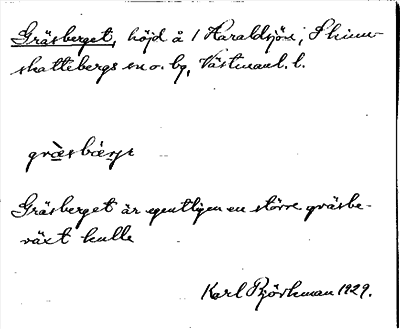 Gräsberget, höjd å 1 Haraldsjön, Skinn-
skattebergs sn o. bg, Västmanl. l.
græ̀sbæ̀rjə
Gräsberget är egentligen en större gräsbe-
växt kulle
Karl Björkman 1929.